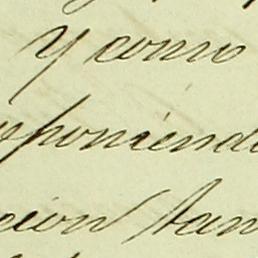 y como
oponiendo
cion tan